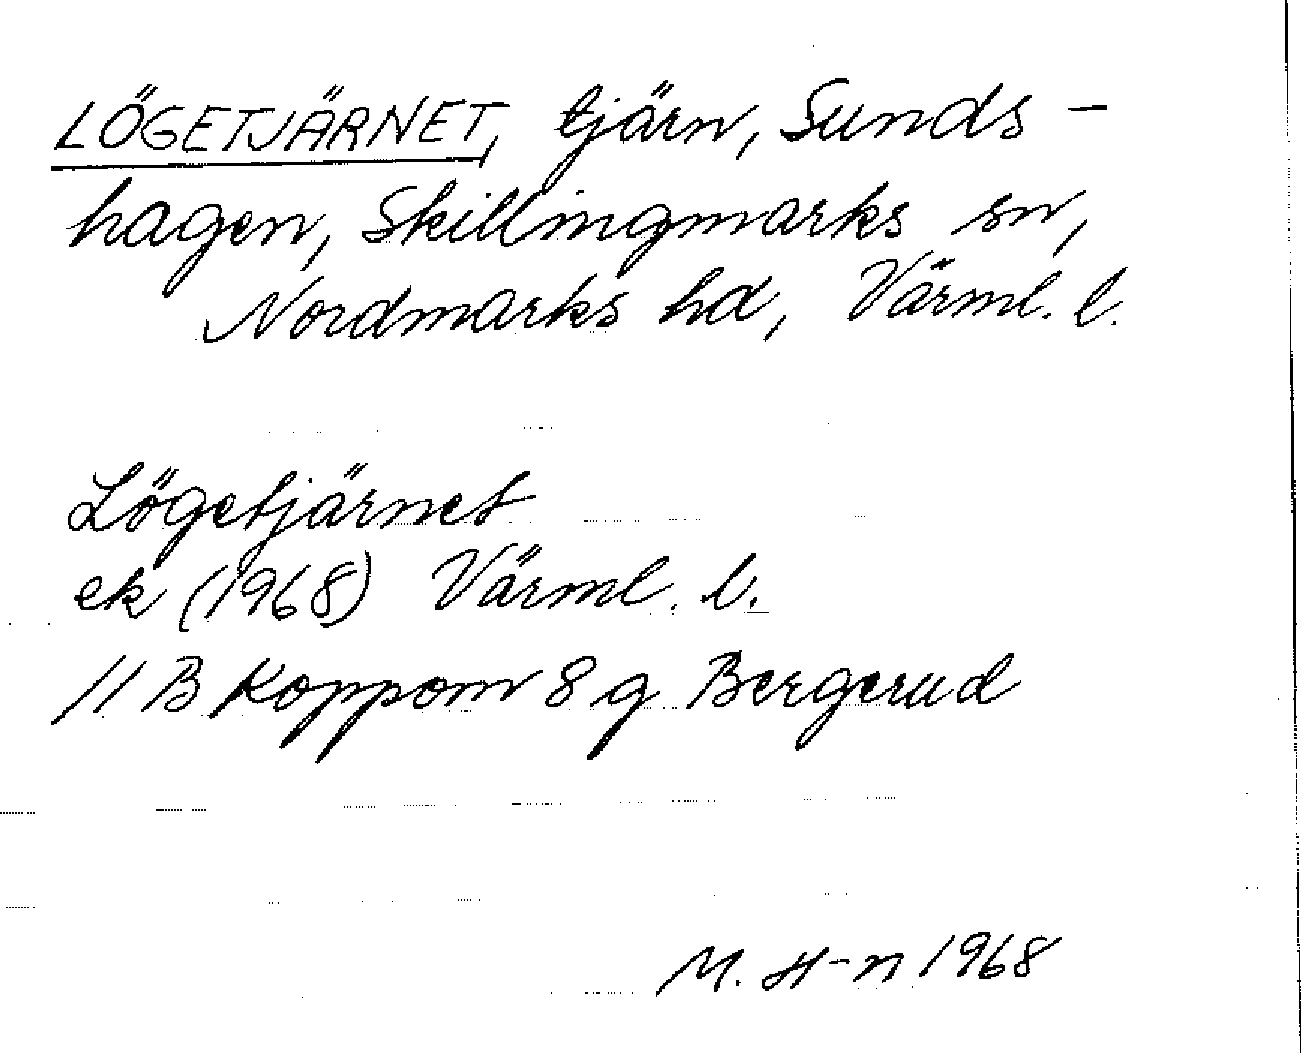 LÖGETJÄRNET, tjärn, Sunds-
hagen, Skillingmarks sn,
Nordmarks hd, Värml. l.
Lögetjärnet
ek (1968) Värml. l.
11 B Koppom 8 g Bergerud
M. H-n 1968